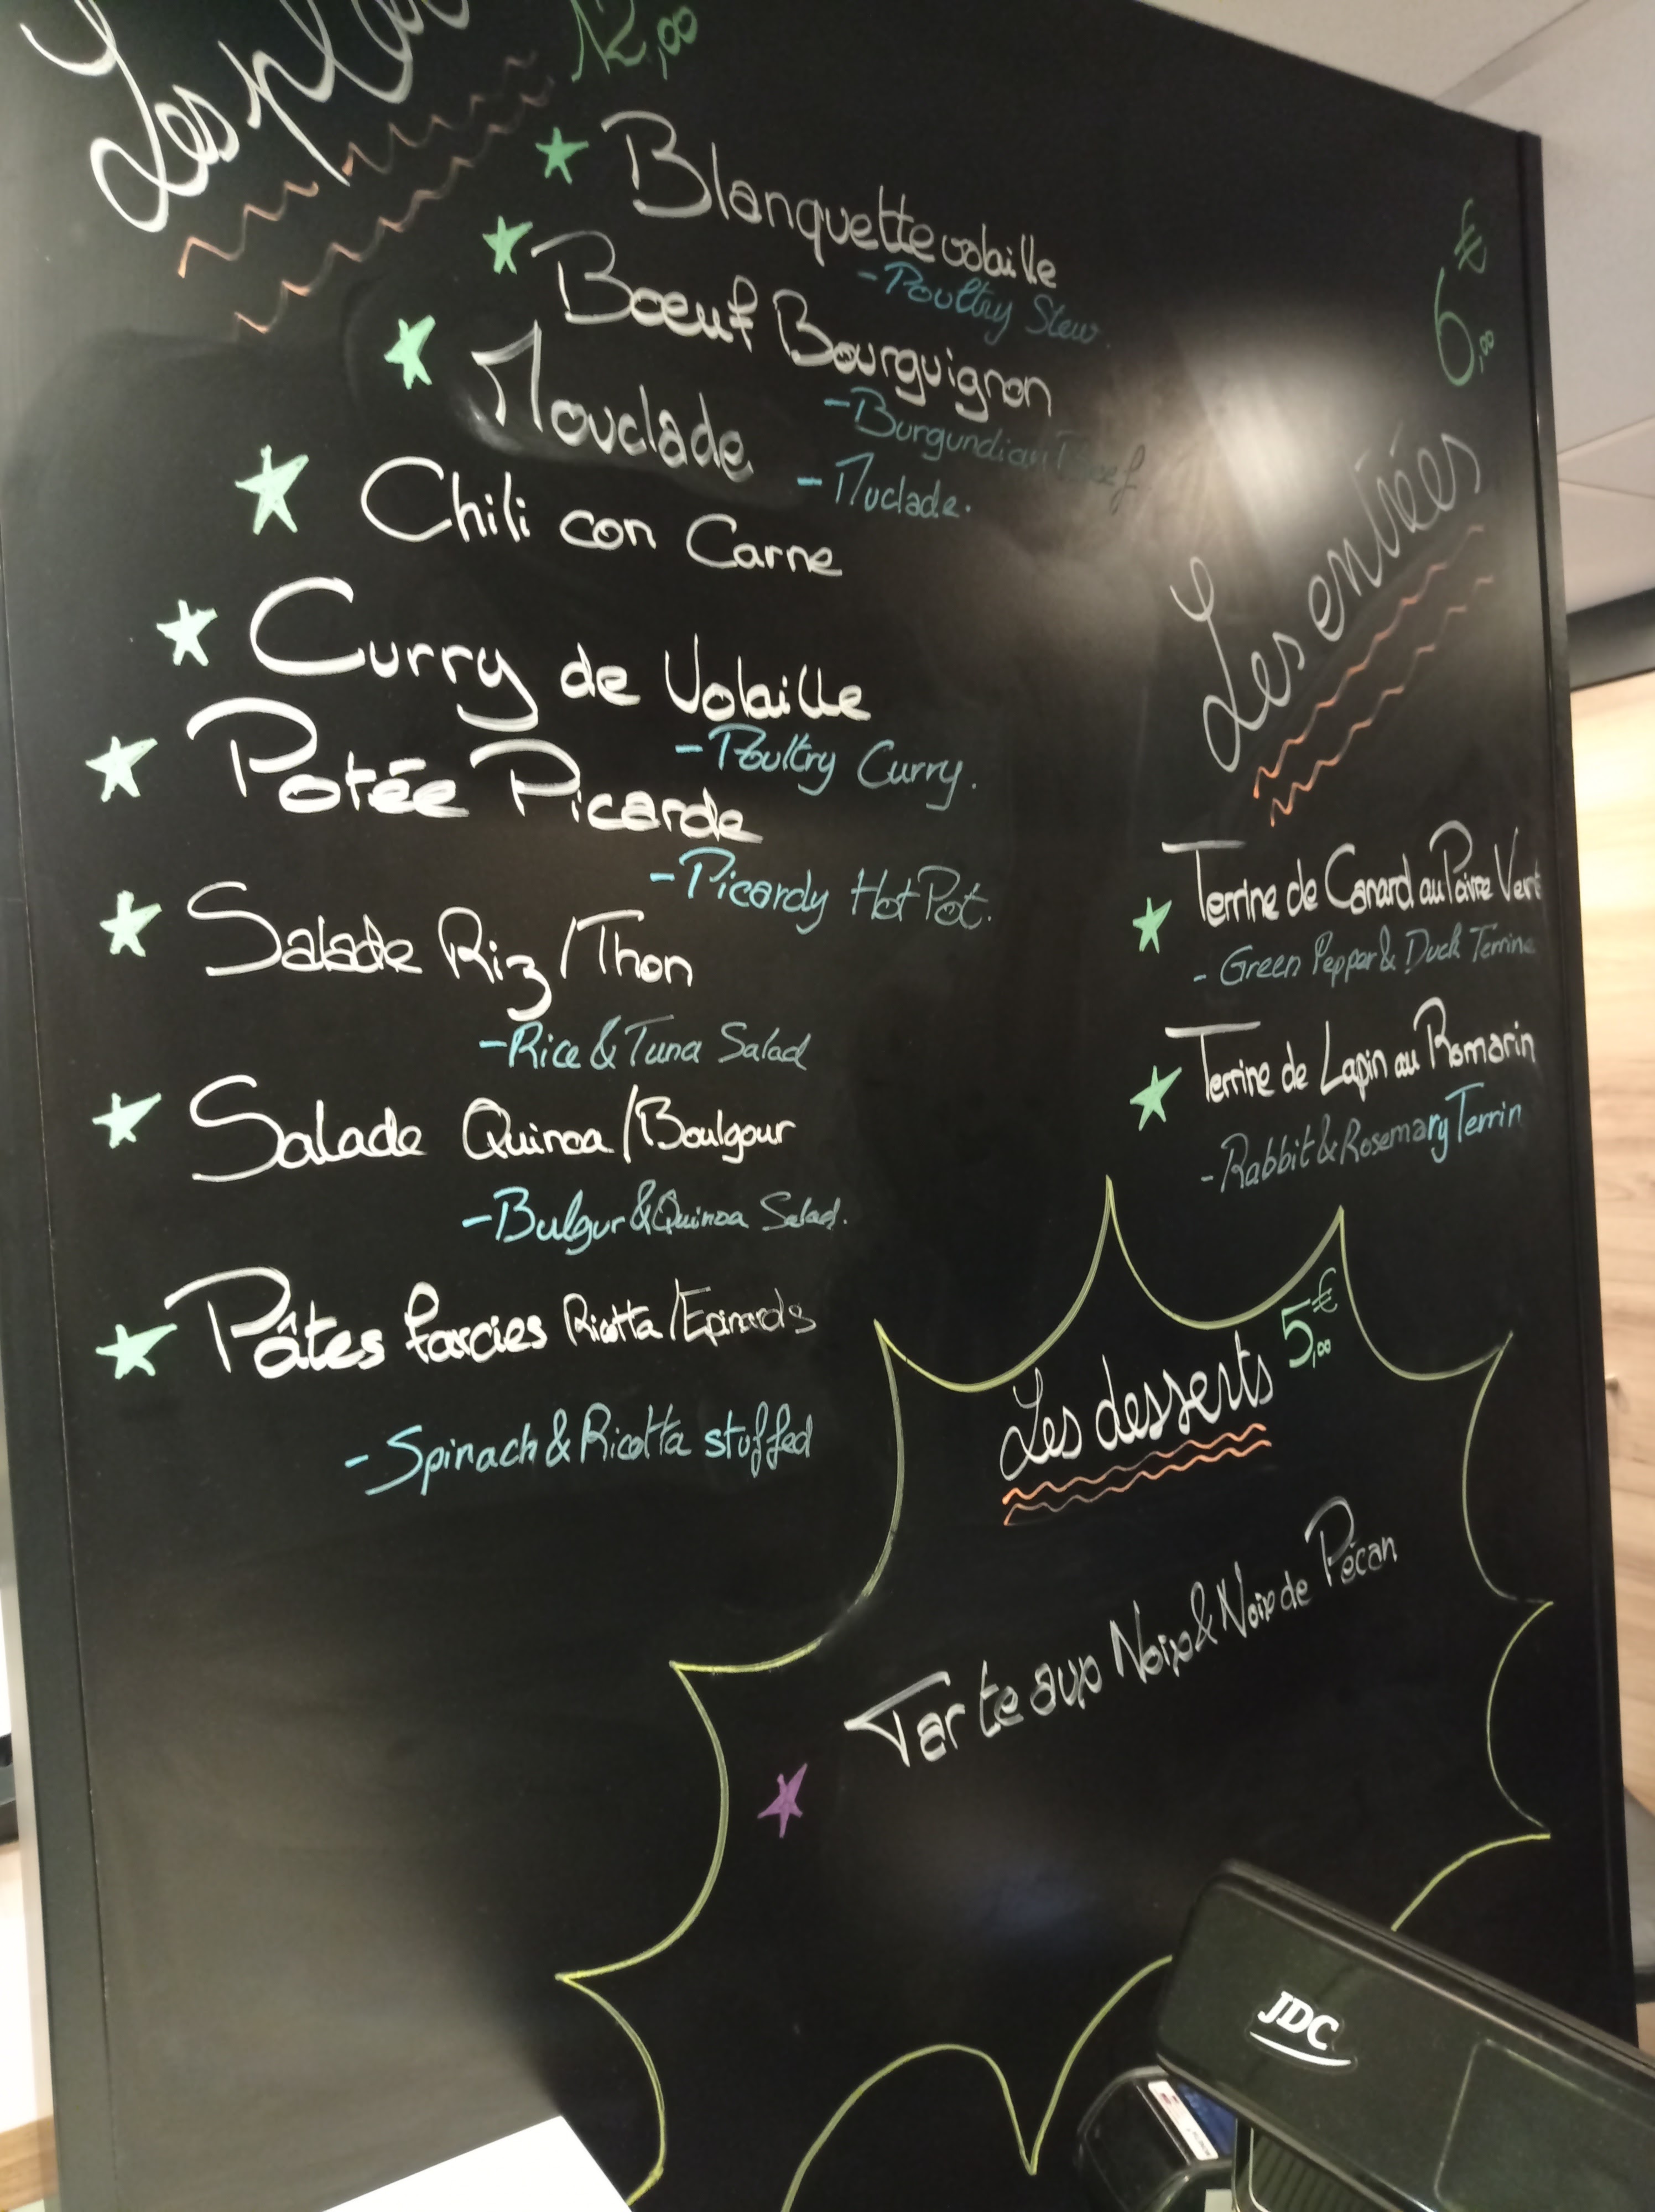 Les
12,00
Blanquette volaille
- Poultry Stew.
Boeuf Bourguignon
- Burgundian Beef
Mouclade
- Muclade.
Chili con Carne
Curry de Volaille
- Poultry Curry.
Potée Picarde
- Picardy Hot Pot.
Salade Riz/Thon
- Rice & Tuna Salad
Salade Quinoa/Boulgour
- Bulgur & Quinoa Salad.
Pâtes farcies Ricotta/Epinards
- Spinach & Ricotta stuffed
6,00€
Les entrées
Terrine de Canard au Poivre Vert
- Green Pepper & Duck Terrine
Terrine de Lapin au Romarin
- Rabbit & Rosemary Terrin
Les desserts 5,00€
Tarte aux Noix & Noix de Pécan
JDC